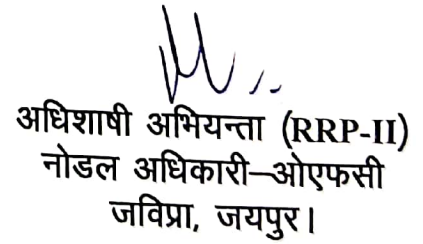 अधिशाषी अभियन्ता (RRP-II)
नोडल अधिकारी–ओएफसी
जविप्रा, जयपुर।